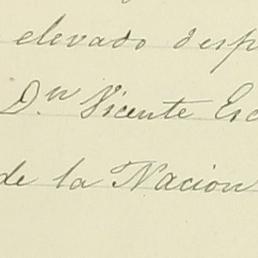 elevado desp
Dn Vicente Esc
de la Nación